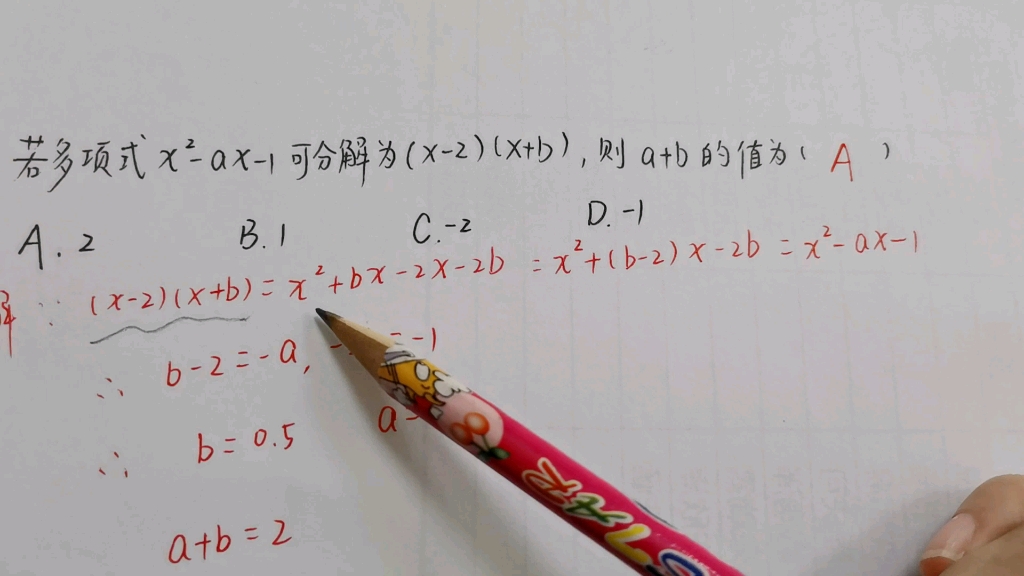 若多项式 x²-ax-1 可分解为(x-2)(x+b),则 a+b 的值为( A )
A. 2 B. 1 C. -2 D. -1
解 ∵ (x-2)(x+b) = x²+bx-2x-2b = x²+(b-2)x-2b = x²-ax-1
∴ b-2=-a, = -1
∴ b=0.5 a
a+b=2